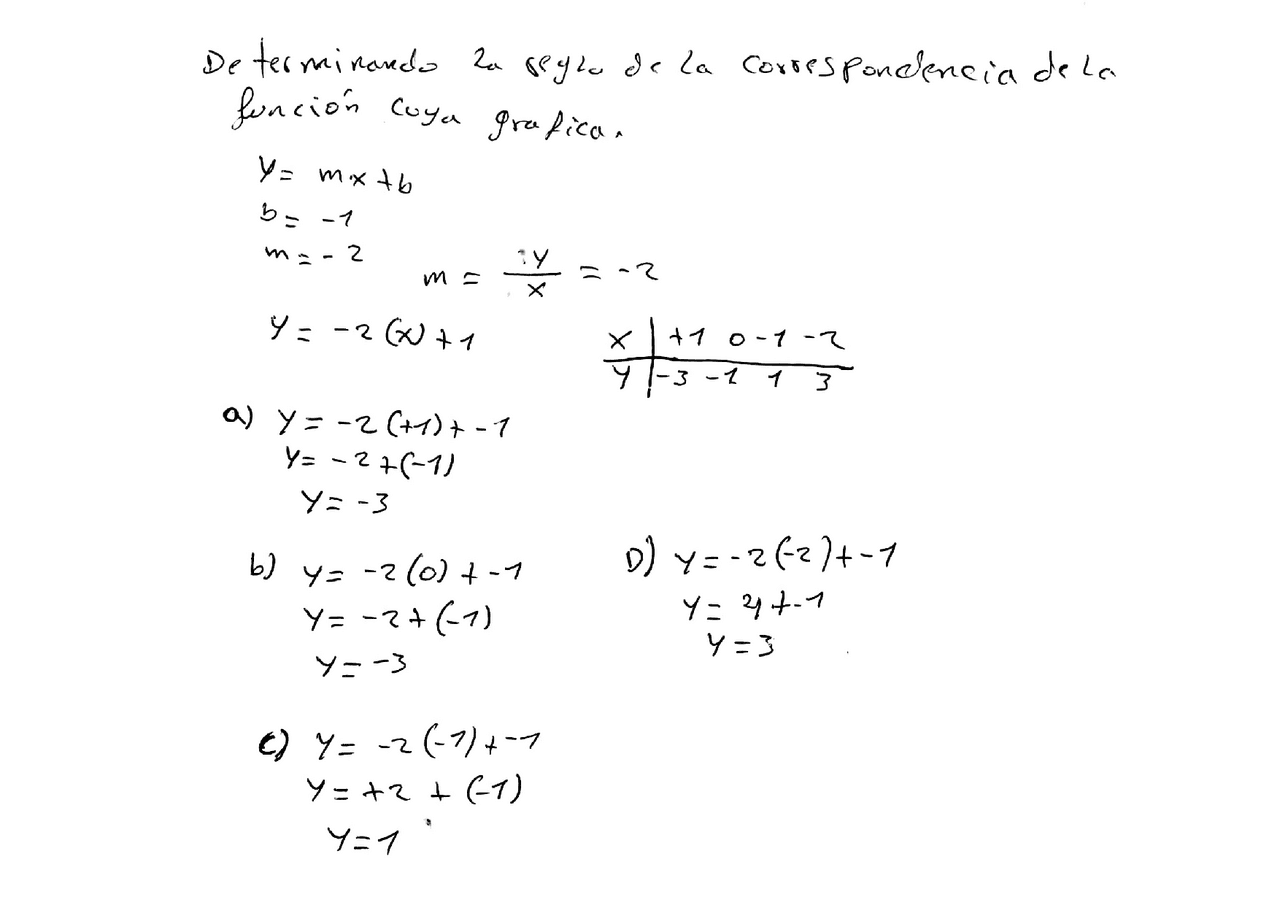 Determinando la regla de la correspondencia de la
función cuya grafica.
y = mx+b
b = -1
m = -2
m = y/x = -2
y = -2(x)+1
x | +1 0 -1 -2
y | -3 -1 1 3
a) y = -2(+1)+ -1
y = -2+(-1)
y = -3
b) y = -2(0)+ -1
y = -2+(-1)
y = -3
D) y = -2(-2)+ -1
y = 4+-1
y = 3
c) y = -2(-1)+-1
y = +2 + (-1)
y = 1